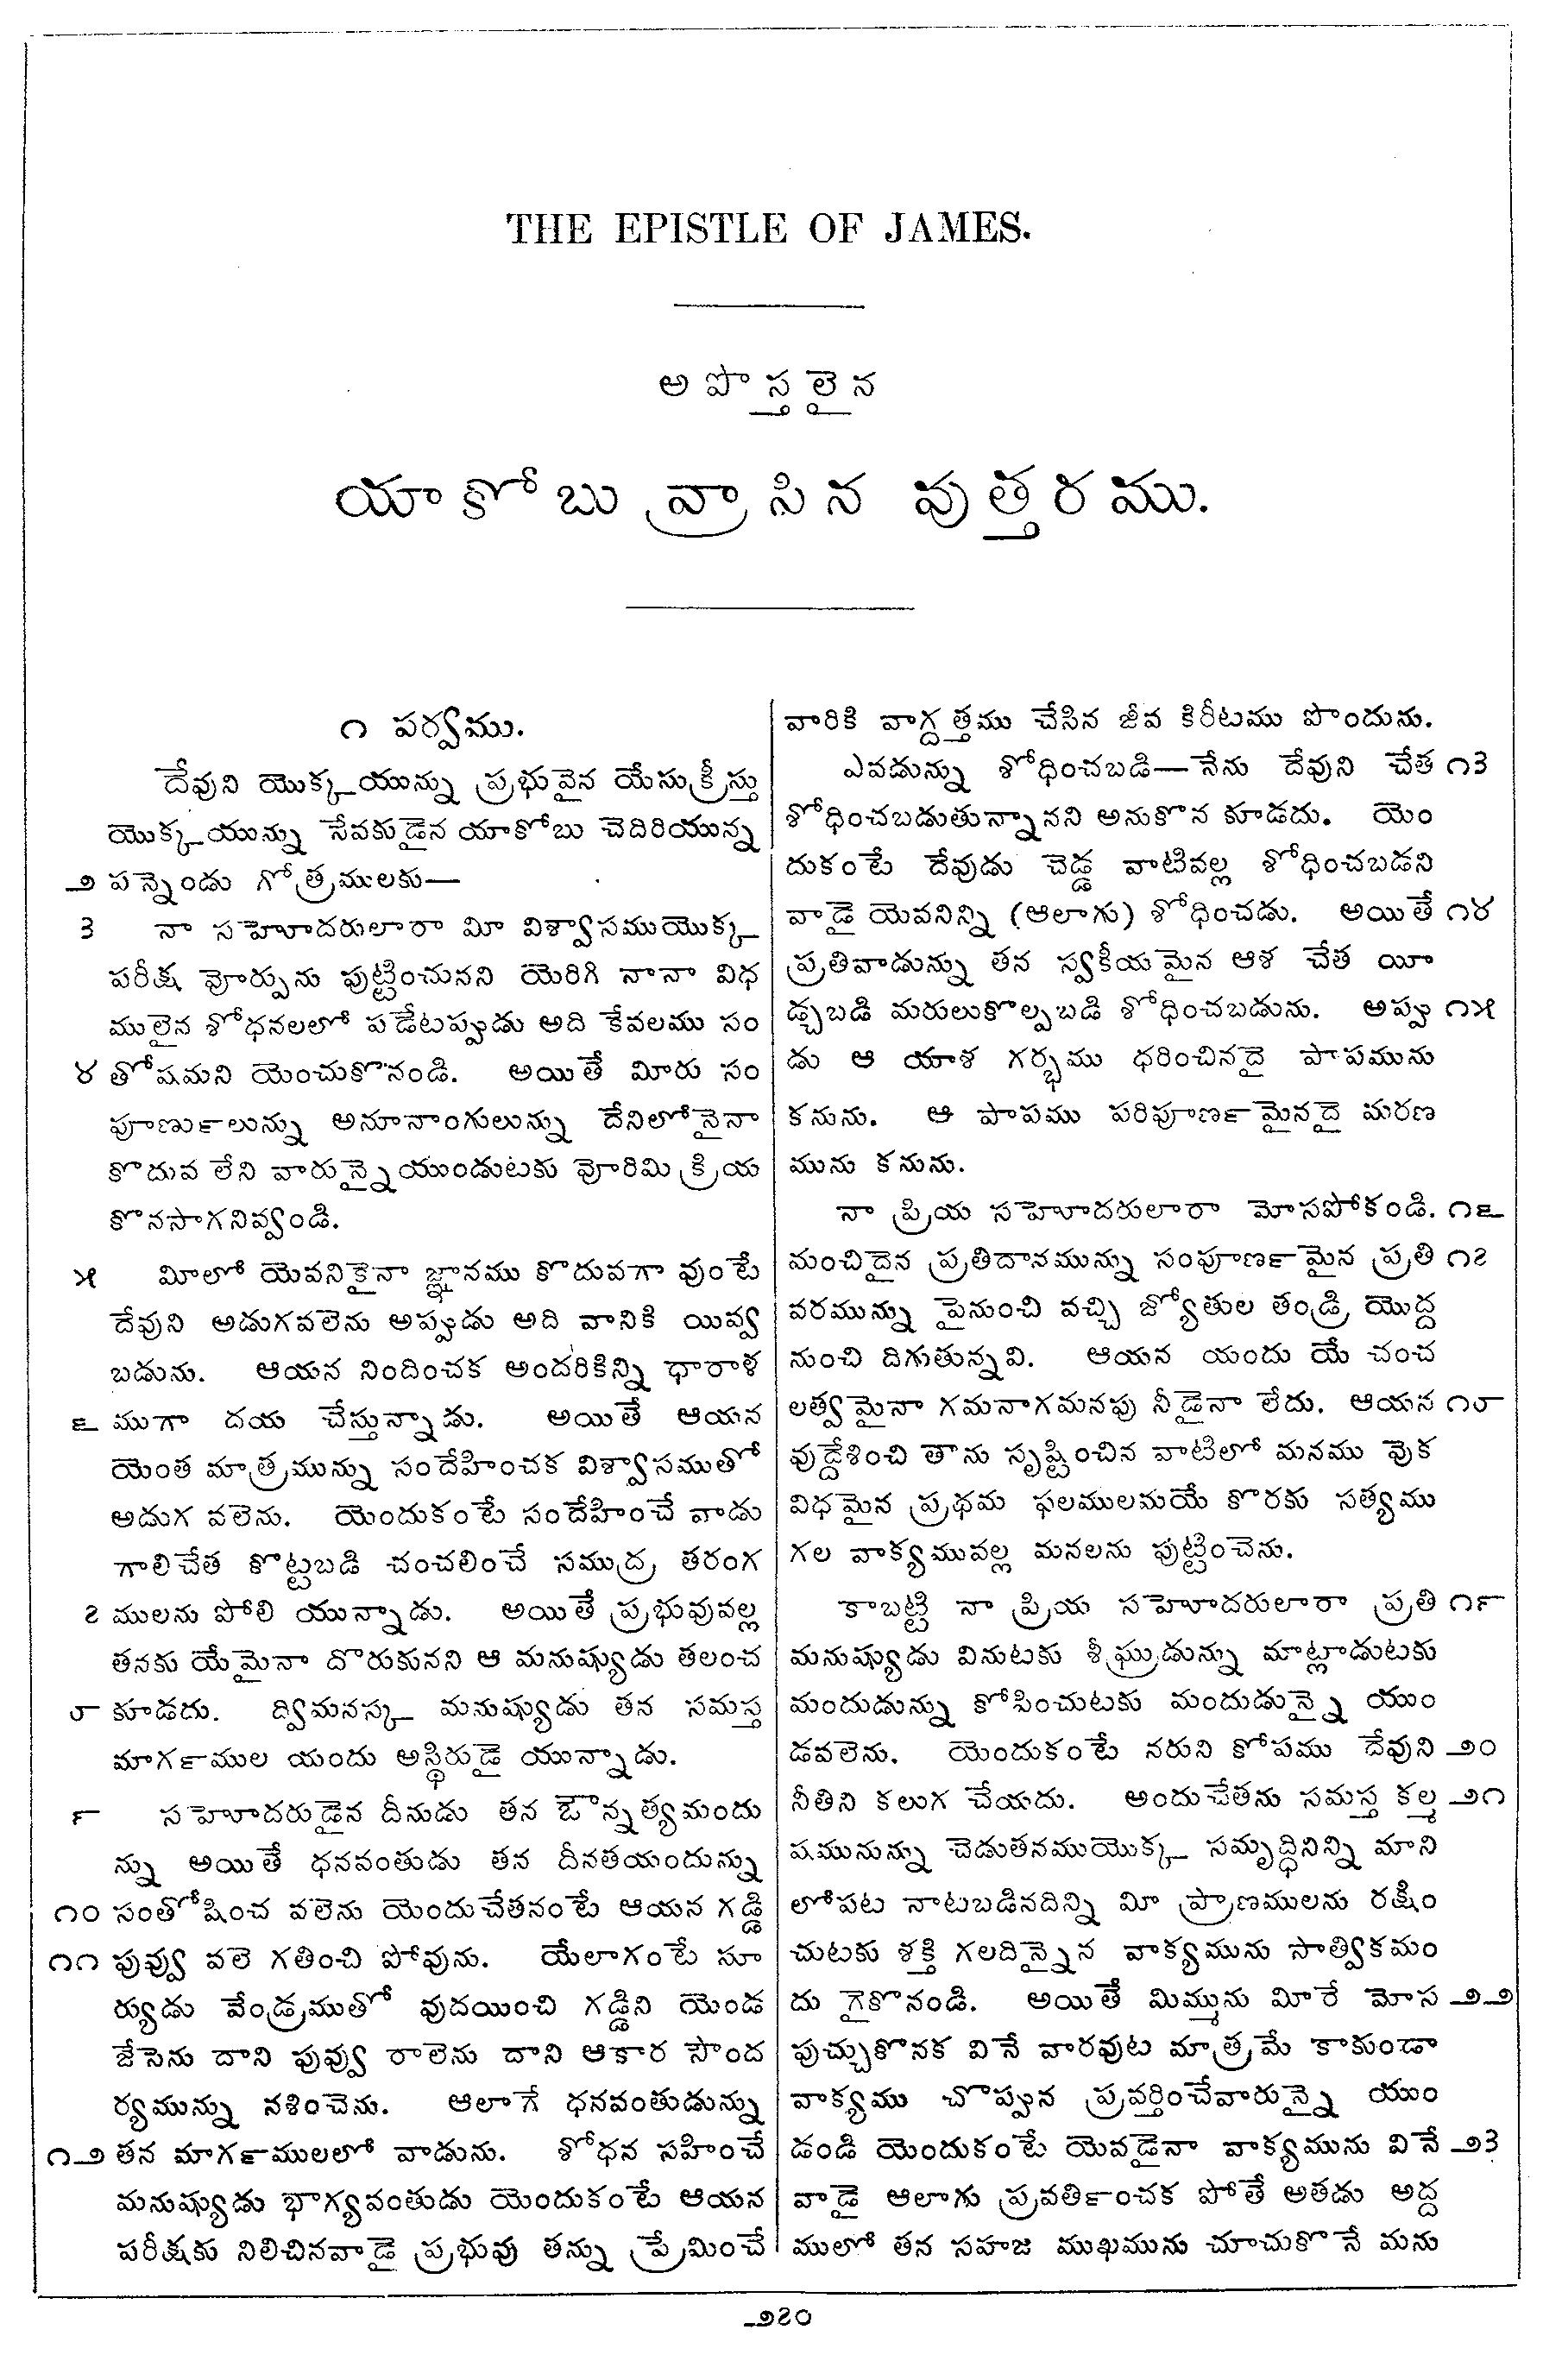 THE EPISTLE OF JAMES.
అపొస్తలైన
యాకోబు వ్రాసిన వుత్తరము.
౧ పర్వము.
దేవుని యొక్కయున్ను ప్రభువైన యేసుక్రీస్తు
యొక్కయున్ను సేవకుడైన యాకోబు చెదిరియున్న
౨ పన్నెండు గోత్రములకు—
౩ నా సహోదరులారా మీ విశ్వాసముయొక్క
పరీక్ష వోర్పును పుట్టించునని యెరిగి నానా విధ
ములైన శోధనలలో పడేటప్పుడు అది కేవలము సం
౪ తోషమని యెంచుకొనండి. అయితే మీరు సం
పూణుర్‌లున్ను అనూనాంగులున్ను దేనిలోనైనా
కొదువ లేని వారున్నైయుండుటకు వోరిమి క్రియ
కొనసాగనివ్వండి.
౫ మీలో యెవనికైనా జ్ఞానము కొదువగా వుంటే
దేవుని అడుగవలెను అప్పుడు అది వానికి యివ్వ
బడును. ఆయన నిందించక అందరికిన్ని ధారాళ
౬ ముగా దయ చేస్తున్నాడు. అయితే ఆయన
యెంత మాత్రమున్ను సందేహించక విశ్వాసముతో
అడుగ వలెను. యెందుకంటే సందేహించే వాడు
గాలిచేత కొట్టబడి చంచలించే సముద్ర తరంగ
౭ ములను పోలి యున్నాడు. అయితే ప్రభువువల్ల
తనకు యేమైనా దొరుకునని ఆ మనుష్యుడు తలంచ
౮ కూడదు. ద్విమనస్క మనుష్యుడు తన సమస్త
మాగర్‌ముల యందు అస్థిరుడై యున్నాడు.
౯ సహోదరుడైన దీనుడు తన ఔన్నత్యమందు
న్ను అయితే ధనవంతుడు తన దీనతయందున్ను
౧౦ సంతోషించ వలెను యెందుచేతనంటే ఆయన గడ్డి
౧౧ పువ్వు వలె గతించి పోవును. యేలాగంటే సూ
ర్యుడు వేండ్రముతో వుదయించి గడ్డిని యెండ
జేసెను దాని పువ్వు రాలెను దాని ఆకార సౌంద
ర్యమున్ను నశించెను. ఆలాగే ధనవంతుడున్ను
౧౨ తన మాగర్‌ములలో వాడును. శోధన సహించే
మనుష్యుడు భాగ్యవంతుడు యెందుకంటే ఆయన
పరీక్షకు నిలిచినవాడై ప్రభువు తన్ను ప్రేమించే
వారికి వాగ్దత్తము చేసిన జీవ కిరీటము పొందును.
ఎవడున్ను శోధించబడి—నేను దేవుని చేత ౧౩
శోధించబడుతున్నానని అనుకొన కూడదు. యెం
దుకంటే దేవుడు చెడ్డ వాటివల్ల శోధించబడని
వాడై యెవనిన్ని (ఆలాగు) శోధించడు. అయితే ౧౪
ప్రతివాడున్ను తన స్వకీయమైన ఆశ చేత యీ
డ్చబడి మరులుకొల్పబడి శోధించబడును. అప్పు ౧౫
డు ఆ యాశ గర్భము ధరించినదై పాపమును
కనును. ఆ పాపము పరిపూణర్‌మైనదై మరణ
మును కనును.
నా ప్రియ సహోదరులారా మోసపోకండి. ౧౬
మంచిదైన ప్రతిదానమున్ను సంపూణర్‌మైన ప్రతి ౧౭
వరమున్ను పైనుంచి వచ్చి జ్యోతుల తండ్రి యొద్ద
నుంచి దిగుతున్నవి. ఆయన యందు యే చంచ
లత్వమైనా గమనాగమనపు నీడైనా లేదు. ఆయన ౧౮
వుద్దేశించి తాను సృష్టించిన వాటిలో మనము వొక
విధమైన ప్రథమ ఫలములమయే కొరకు సత్యము
గల వాక్యమువల్ల మనలను పుట్టించెను.
కాబట్టి నా ప్రియ సహోదరులారా ప్రతి ౧౯
మనుష్యుడు వినుటకు శీఘ్రుడున్ను మాట్లాడుటకు
మందుడున్ను కోపించుటకు మందుడున్నై యుం
డవలెను. యెందుకంటే నరుని కోపము దేవుని ౨౦
నీతిని కలుగ చేయదు. అందుచేతను సమస్త కల్మ ౨౧
షమునున్ను చెడుతనముయొక్క సమృద్ధినిన్ని మాని
లోపట నాటబడినదిన్ని మీ ప్రాణములను రక్షిం
చుటకు శక్తి గలదిన్నైన వాక్యమును సాత్వికమం
దు గైకొనండి. అయితే మిమ్మును మీరే మోస ౨౨
పుచ్చుకొనక వినే వారవుట మాత్రమే కాకుండా
వాక్యము చొప్పున ప్రవర్తించేవారున్నై యుం
డండి యెందుకంటే యెవడైనా వాక్యమును వినే ౨౩
వాడై ఆలాగు ప్రవతిర్‌ంచక పోతే అతడు అద్ద
ములో తన సహజ ముఖమును చూచుకొనే మను
౨౭౦